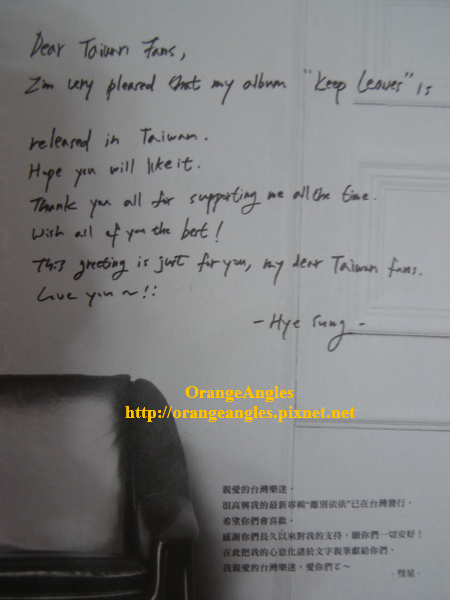 Dear Taiwan Fans,
I'm very pleased that my album "Keep Leaves" is
released in Taiwan.
Hope you will like it.
Thank you all for supporting me all the time.
Wish all of you the best!
This greeting is just for you, my dear Taiwan fans.
Love you ~!!
- Hye Sung -
OrangeAngles
http://orangeangles.pixnet.net
親愛的台灣樂迷，
很高興我的最新專輯“離別依依”已在台灣發行，
希望你們會喜歡。
感謝你們長久以來對我的支持，願你們一切安好！
在此把我的心意化諸於文字親筆獻給你們，
我親愛的台灣樂迷，愛你們ㄛ～
- 彗星 -